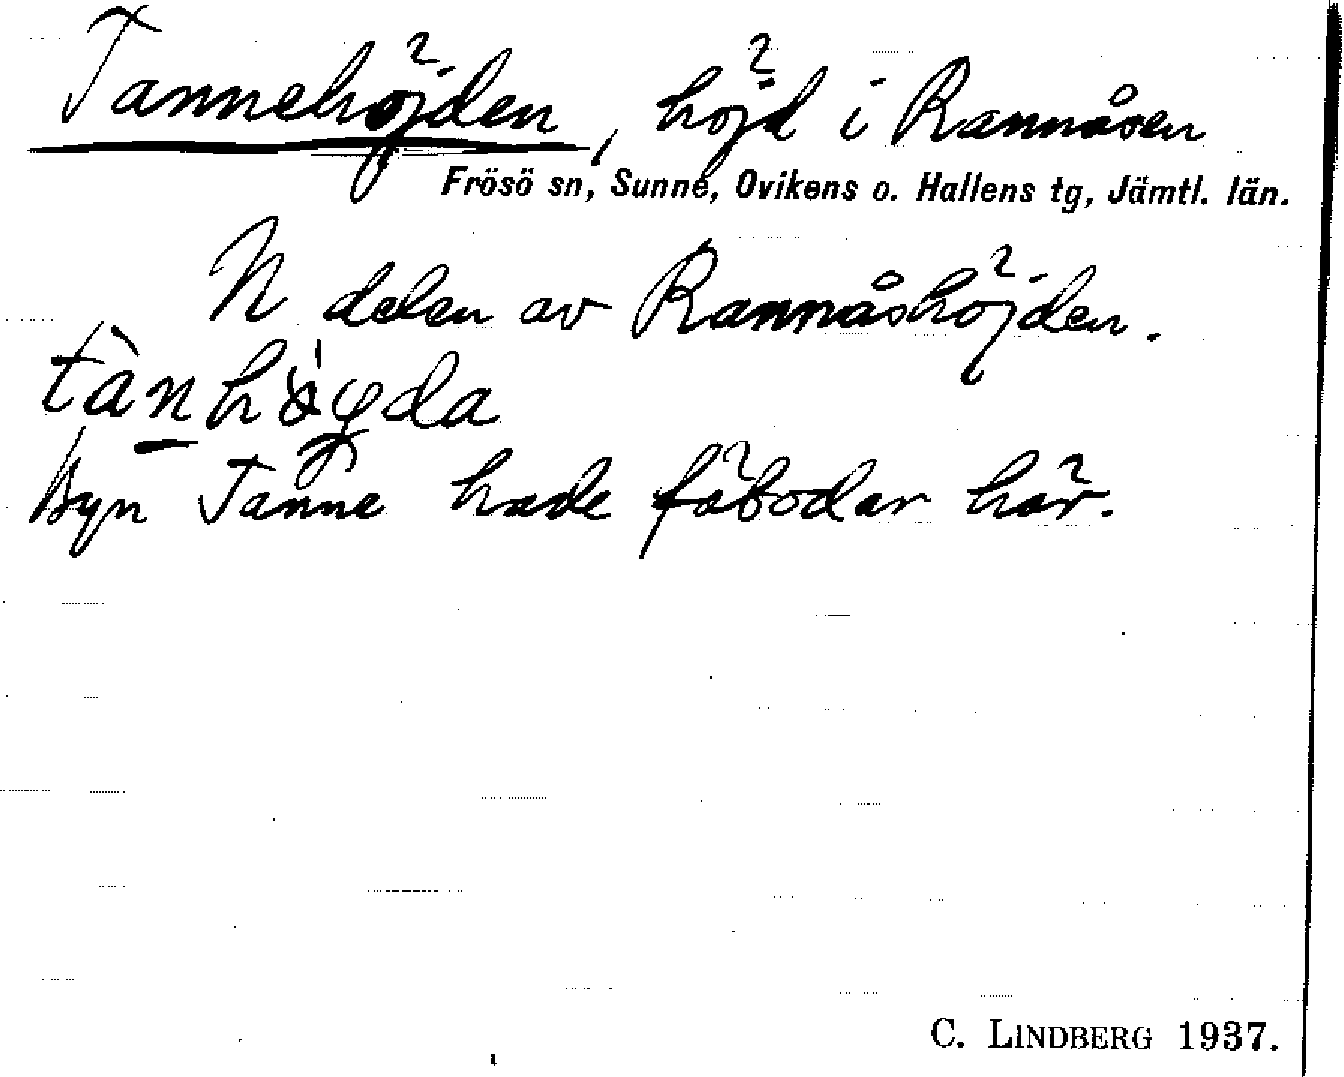 Tannehöjden, höjd i Rannåsen
Frösö sn, Sunne, Ovikens o. Hallens tg, Jämtl. län.
N delen av Rannåshöjden.
Byn Tanne hade fäbodar här.
C. LINDBERG 1937.